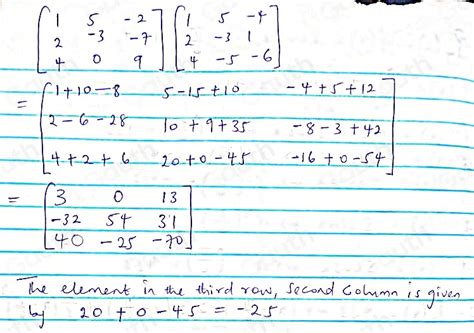 [1 5 -2; 2 -3 -7; 4 0 9] [1 5 -4; 2 -3 1; 4 -5 -6]
= [1+10-8 5-15+10 -4+5+12
2-6-28 10+9+35 -8-3+42
4+2+6 20+0-45 -16+0-54]
= [3 0 13
-32 54 31
40 -25 -70]
The element in the third row, second column is given
by 20 + 0 - 45 = -25